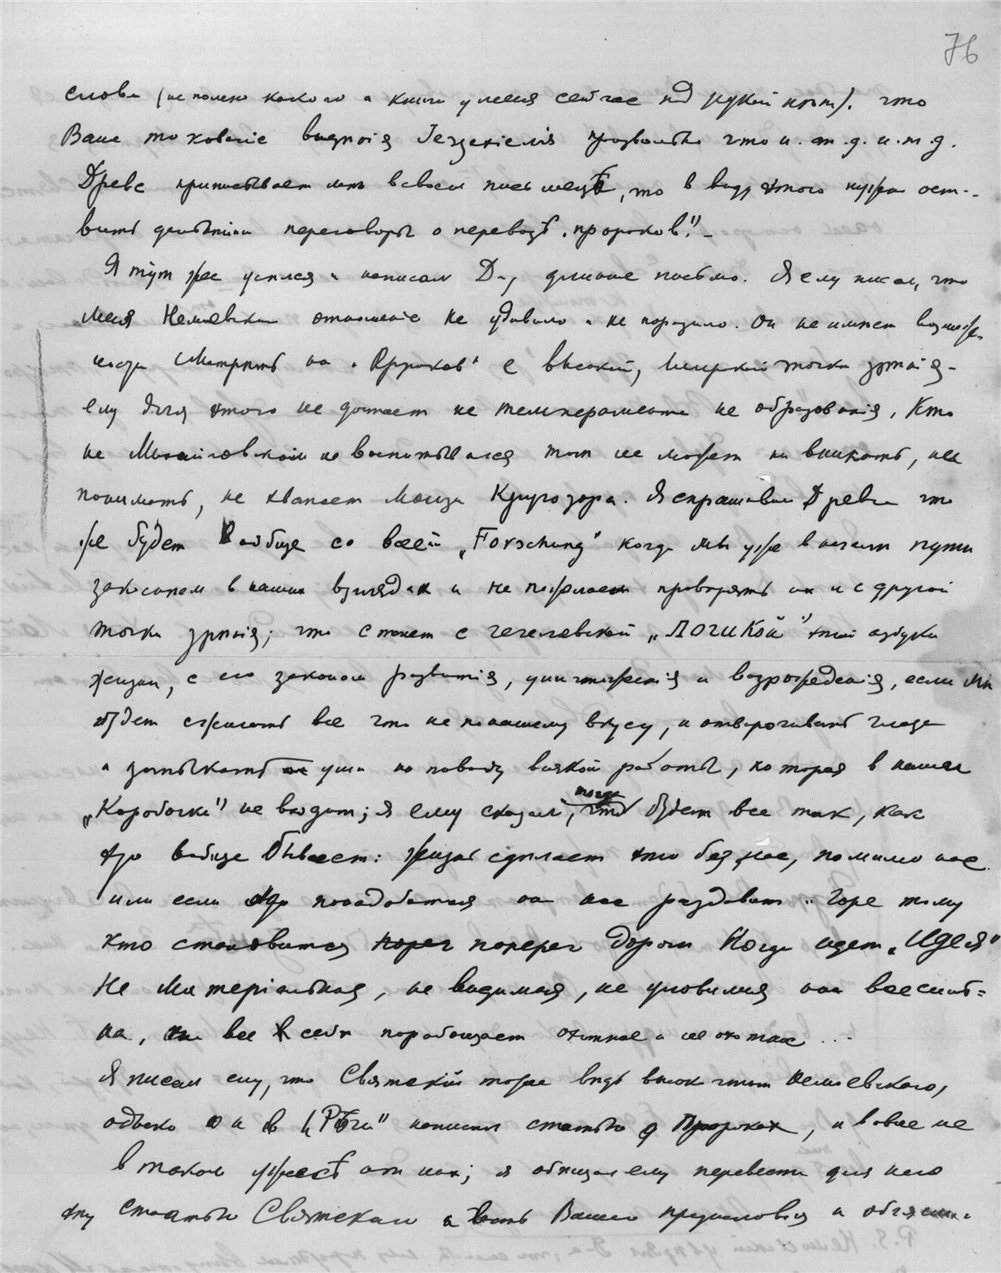 76
слова (не помню какого а книги у меня сейчас под рукой нет). что
Ваше толкование виденія Іезекіеля произвольно что и. т. д. и. т. д.
Древс приписывает мне в своем письме, то в виду этого нужно оста-
вить дальнейшие переговоры о переводѣ „пророков".–
Я тут же уселся и написал Д-у длинное письмо. Я ему писал, что
меня Немоевскаго отношеніе не удивило и не поразило. Он не имеет возможно
смотреть на „Пророков" с высокой, точки зренія –
ему для этого не достает не темперамента не образованія, Кто
не воспитывался тот не может ни вникать, не
понимать, не хватает Кругозора. Я спрашивал Древса что
же будет вообще со всей „Forschung" когда мы уже в начале пути
закоснеем в наших взглядах и не пожелаем проверять их и с другой
точки зренія; что станет с гегелевской „логикой" этой азбуки
жизни, с его законом развитія, уничтоженія и возрожденія, если мы
будем сжигать все что не по нашему вкусу, и отворачивать глаза
и затыкать уши по поводу всякой работы, которая в наши
„Коробочки" не входит; я ему сказал, тогда будет все так, как
это вообще бывает: жизнь сделает это без нас, помимо нас
или если это понадобится она нас раздавит.. Горе тому
кто становится поперег дороги Когда идет „идея"
Не матеріальная, не видимая, не уловимая она всесиль-
на, все в себя порабощает охотное и не охотное ...
Я писал ему, что Святскій тоже ведь Немоевскаго,
однако он и в „Рѣчи" написал статью о Пророках, и вовсе не
в таком ужасѣ от них; я обещал ему перевести для него
эту статью Святскаго и часть Вашего предисловія и объясне-